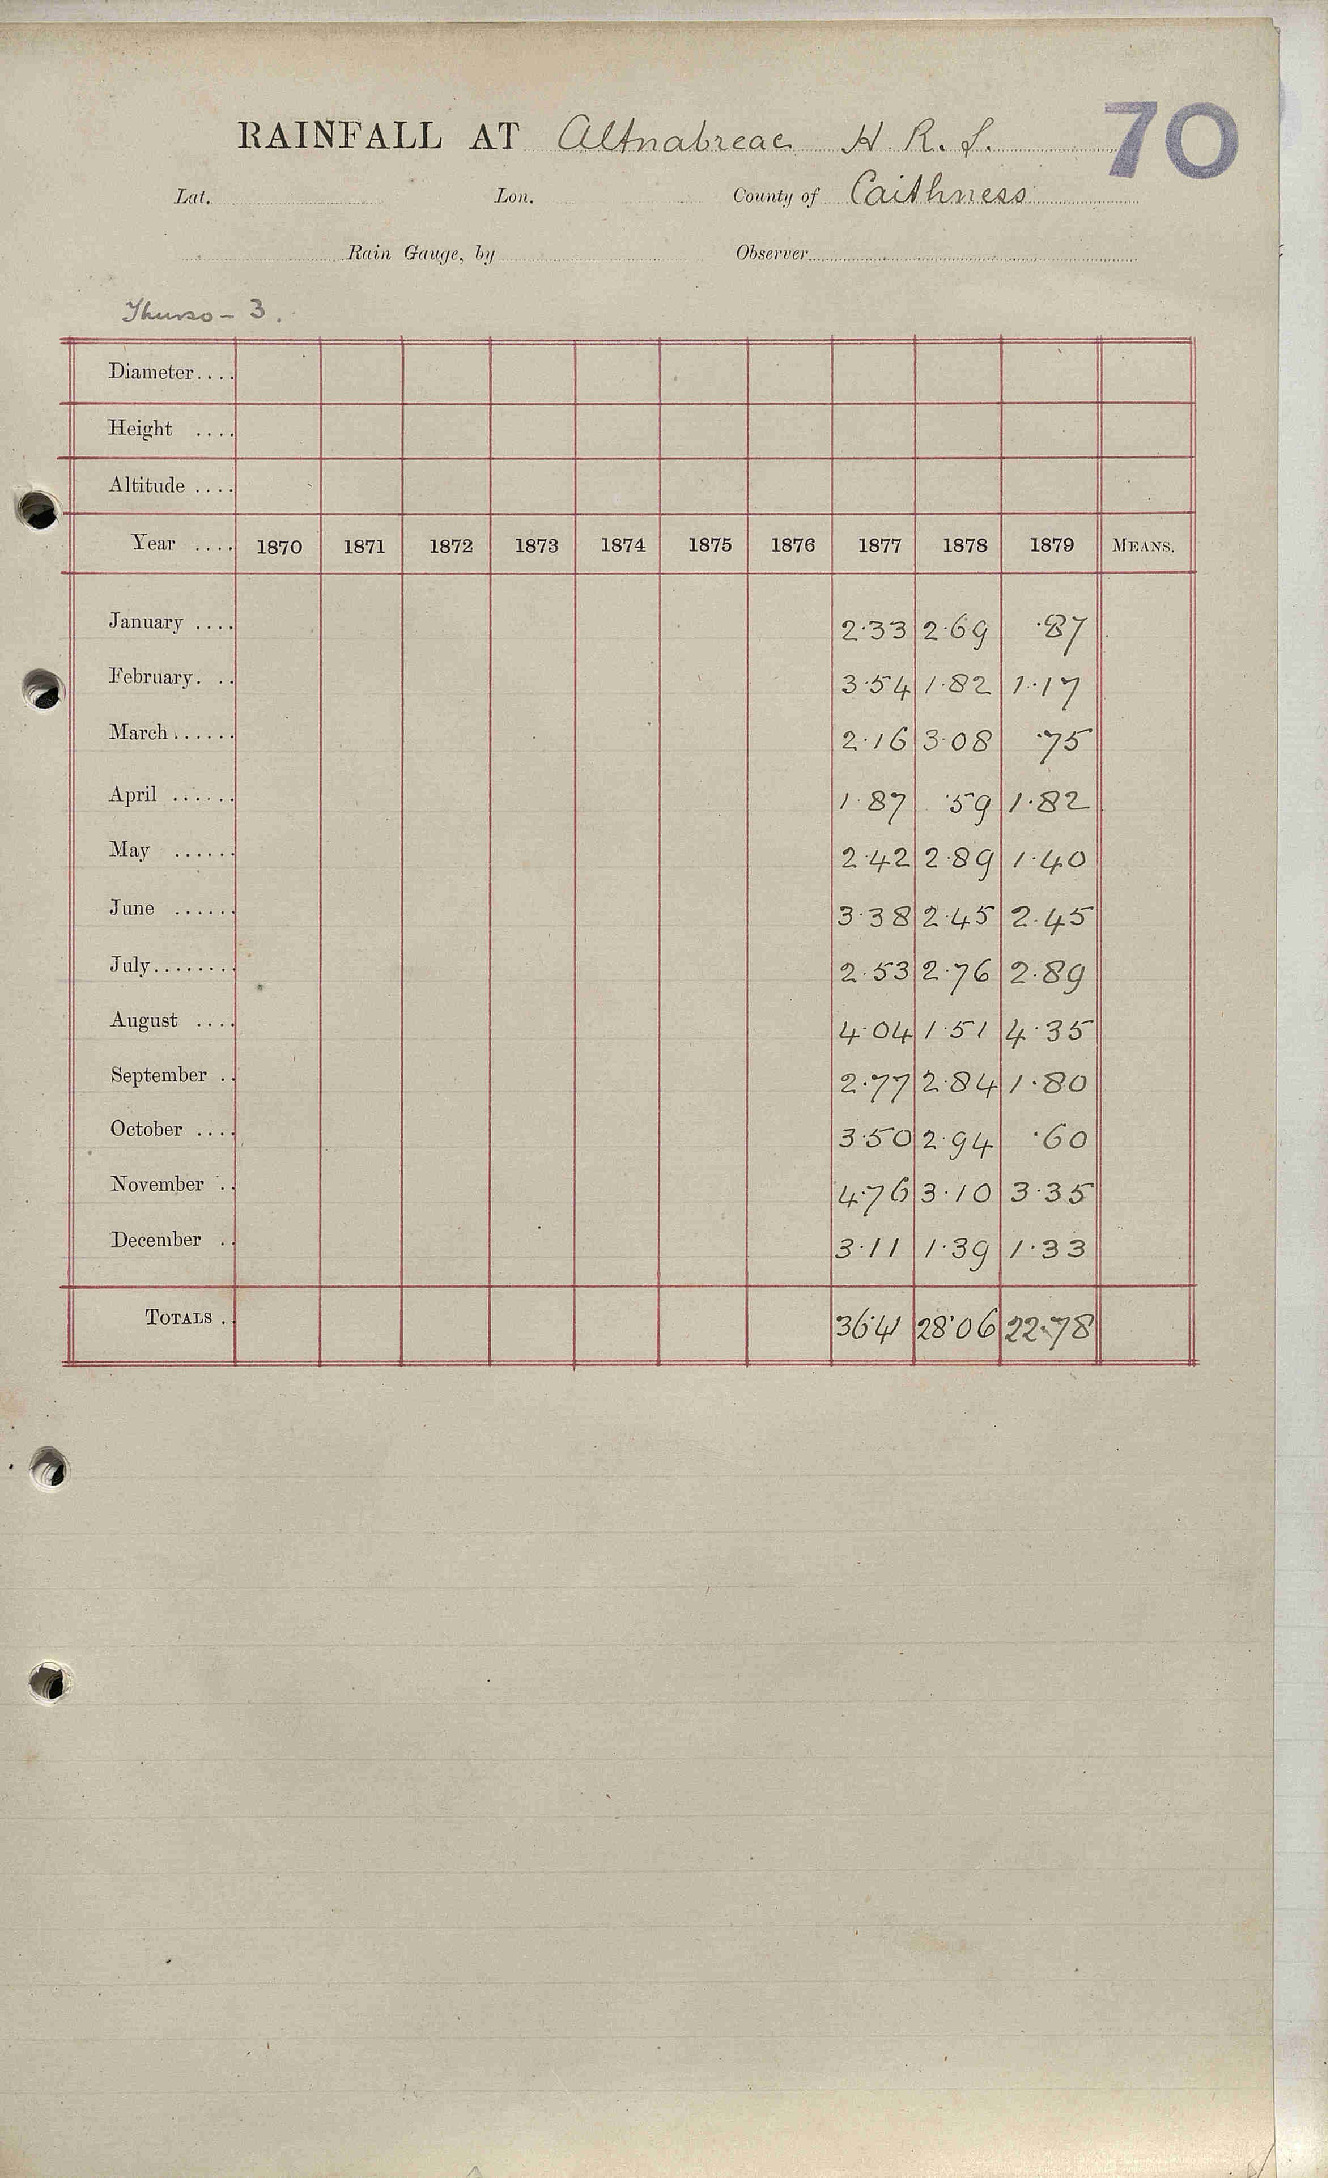 70
RAINFALL AT Altnabreac H. R. S.
Lat. Lon. County of Caithness
Rain Gauge, by Observer
Thurso - 3.
Diameter....
Height ....
Altitude ....
Year .... 1870 1871 1872 1873 1874 1875 1876 1877 1878 1879 MEANS.
January .... 2·33 2·69 ·87
February. .. 3·54 1·82 1·17
March...... 2·16 3·08 ·75
April ...... 1·87 ·59 1·82
May ...... 2·42 2·89 1·40
June ...... 3·38 2·45 2·45
July........ 2·53 2·76 2·89
August .... 4·04 1·51 4·35
September .. 2·77 2·84 1·80
October .... 3·50 2·94 ·60
November .. 4·76 3·10 3·35
December .. 3·11 1·39 1·33
TOTALS . 36·41 28·06 22·78